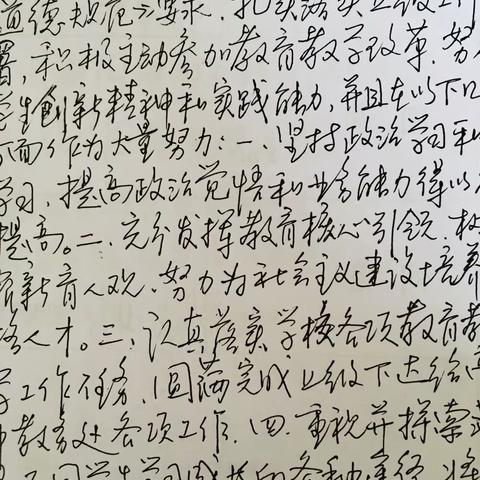 道德规范》要求，扎实落实上级工作
署，积极主动参加教育教学改革，努
学生创新精神和实践能力，并且在以下几
方面作为大量努力：一、坚持政治学习和
学习，提高政治觉悟和业务能力得以
提高。二、充分发挥教育核心引领，树
育新育人观，努力为社会主义建设培养
格人才。三、认真落实学校各项教育教
学工作任务，圆满完成上级下达给
教务处各项工作。四、重视并探索
同学生学习成长的各种途径，将